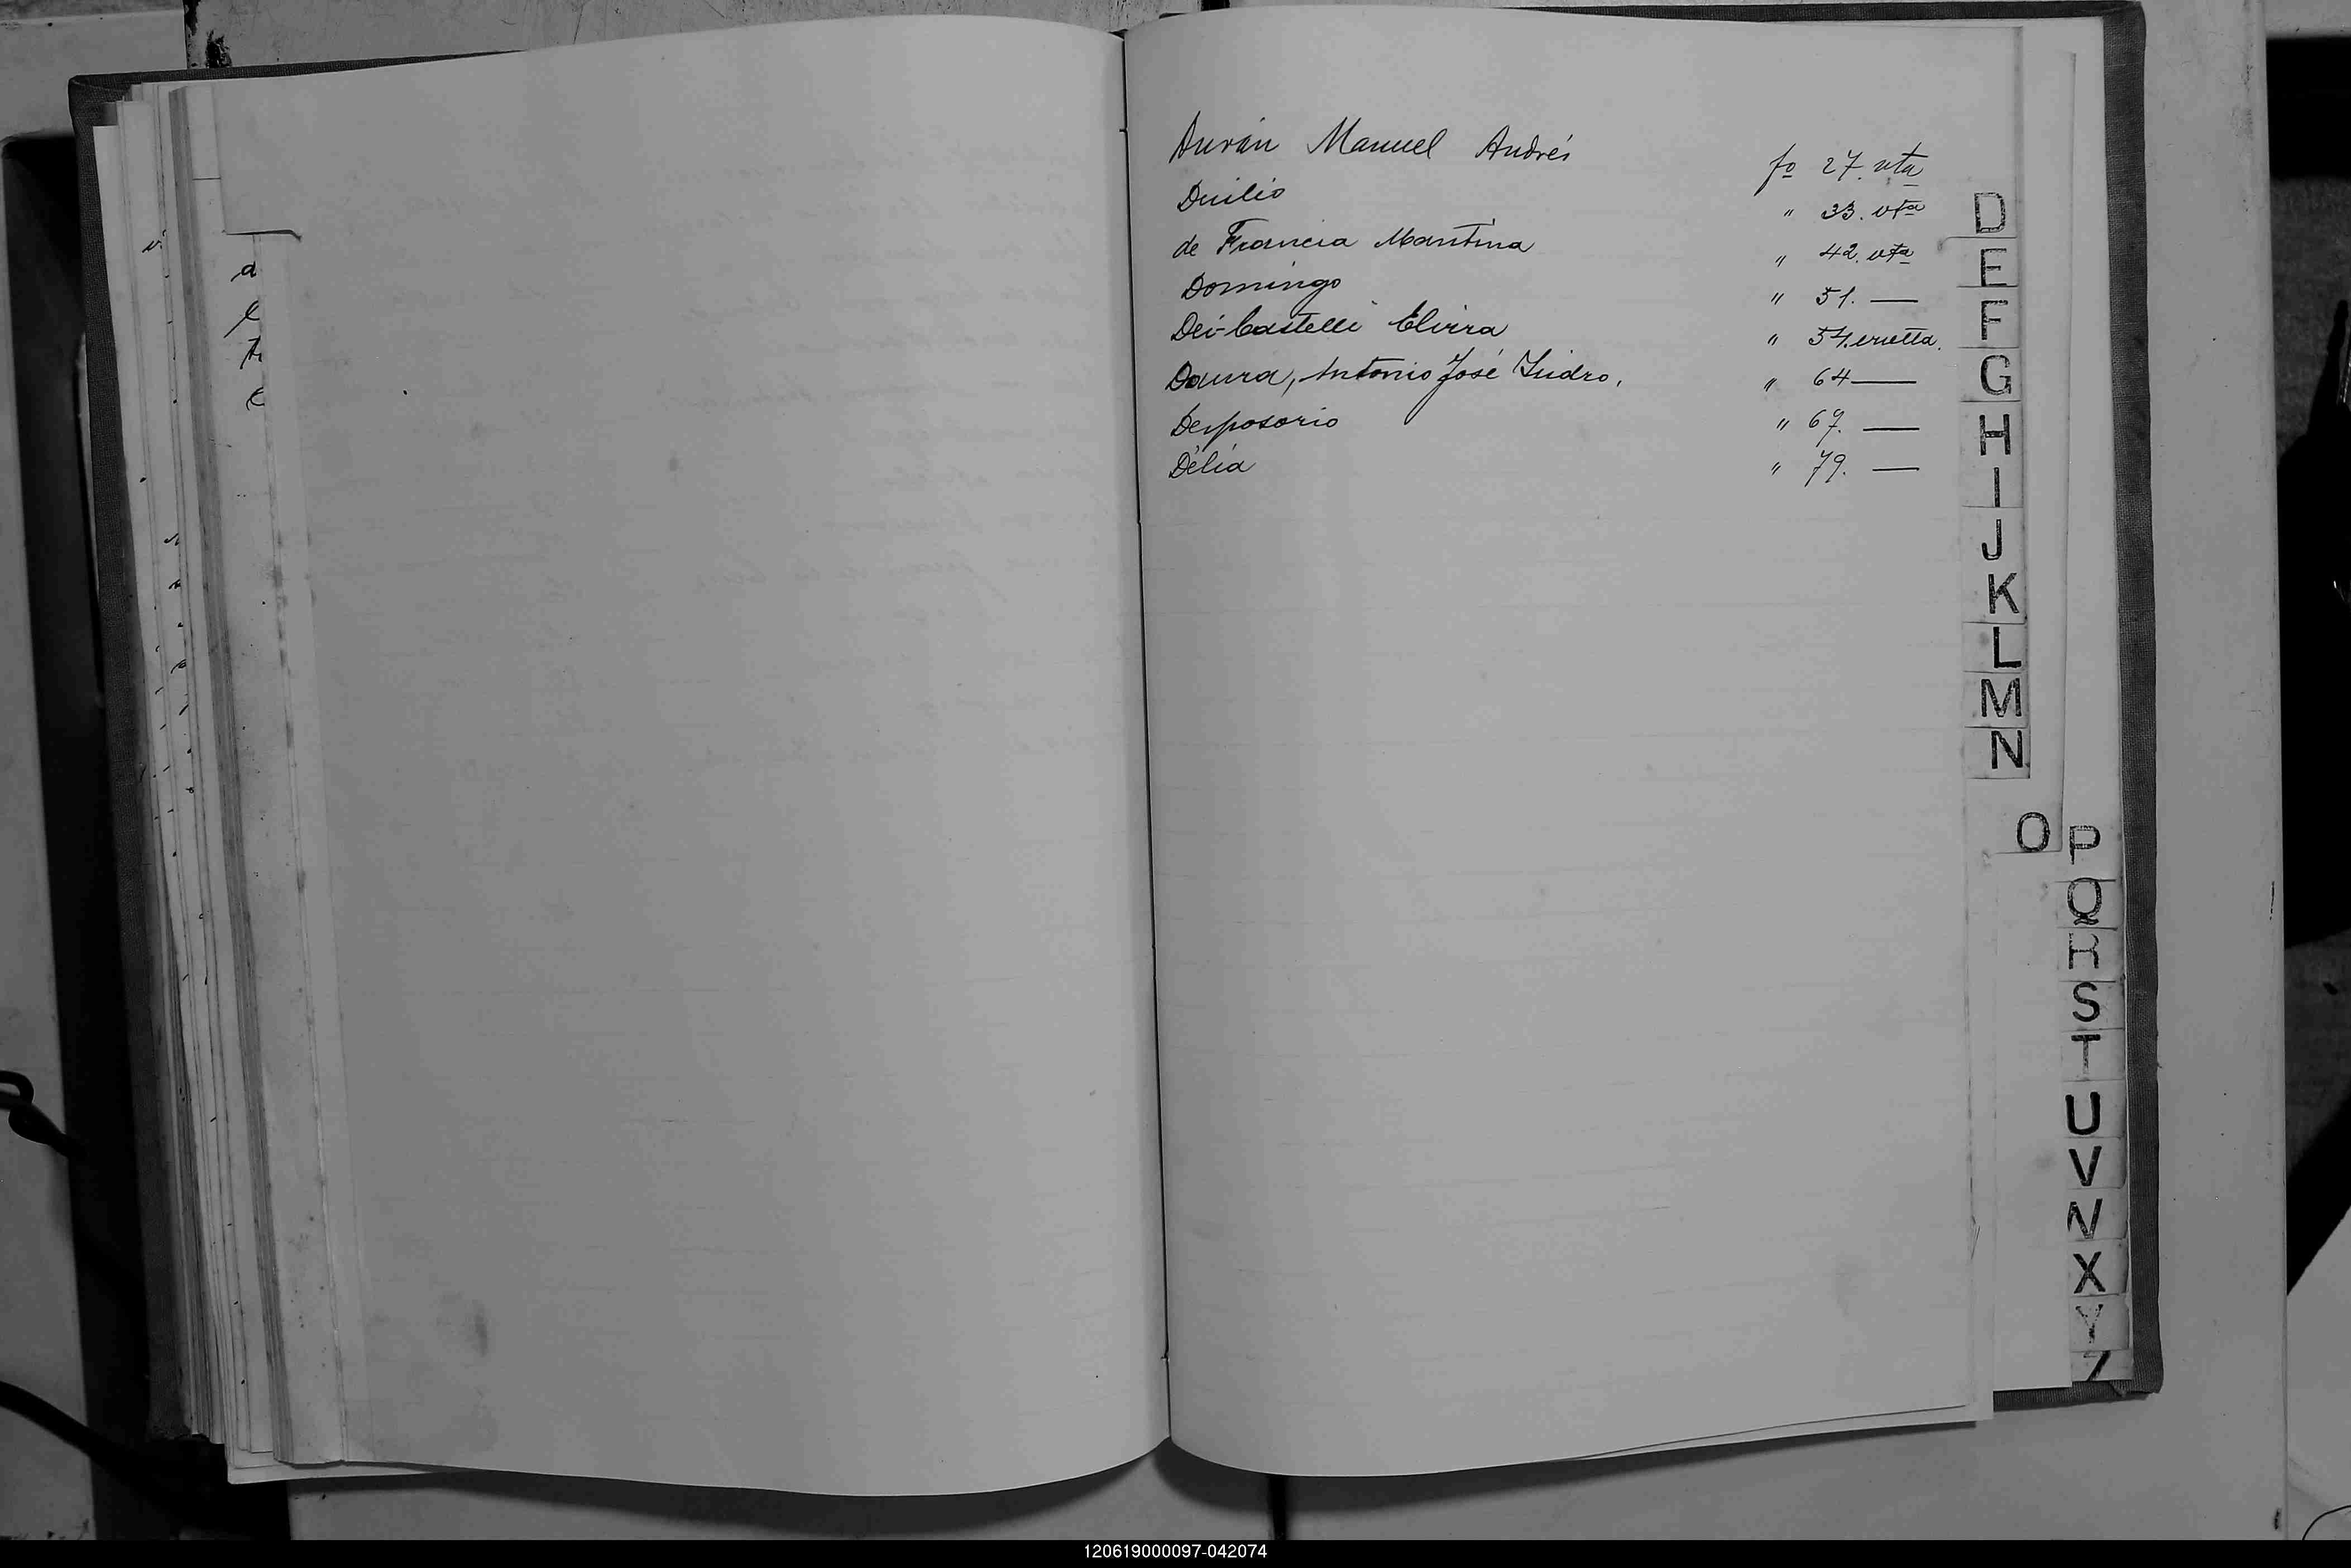 Durán Manuel Andrés fº 27. vta
Duilio " 33. vta
de Francia Mantina " 42. vta
Domingo " 51. —
Dei-Castelli Elvira " 54. vuelta.
Daura, Antonio José Isidro, " 64 —
Desposorio " 67. —
Délia " 79. —
D
E
F
G
H
I
J
K
L
M
N
O
P
Q
R
S
T
U
V
X
Y
Z
120619000097-042074